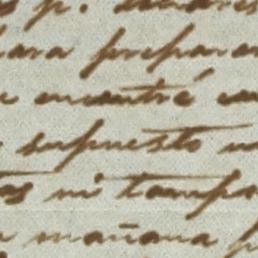 p.
para preparar
encontré
supuesto
ni tampo
mañana p